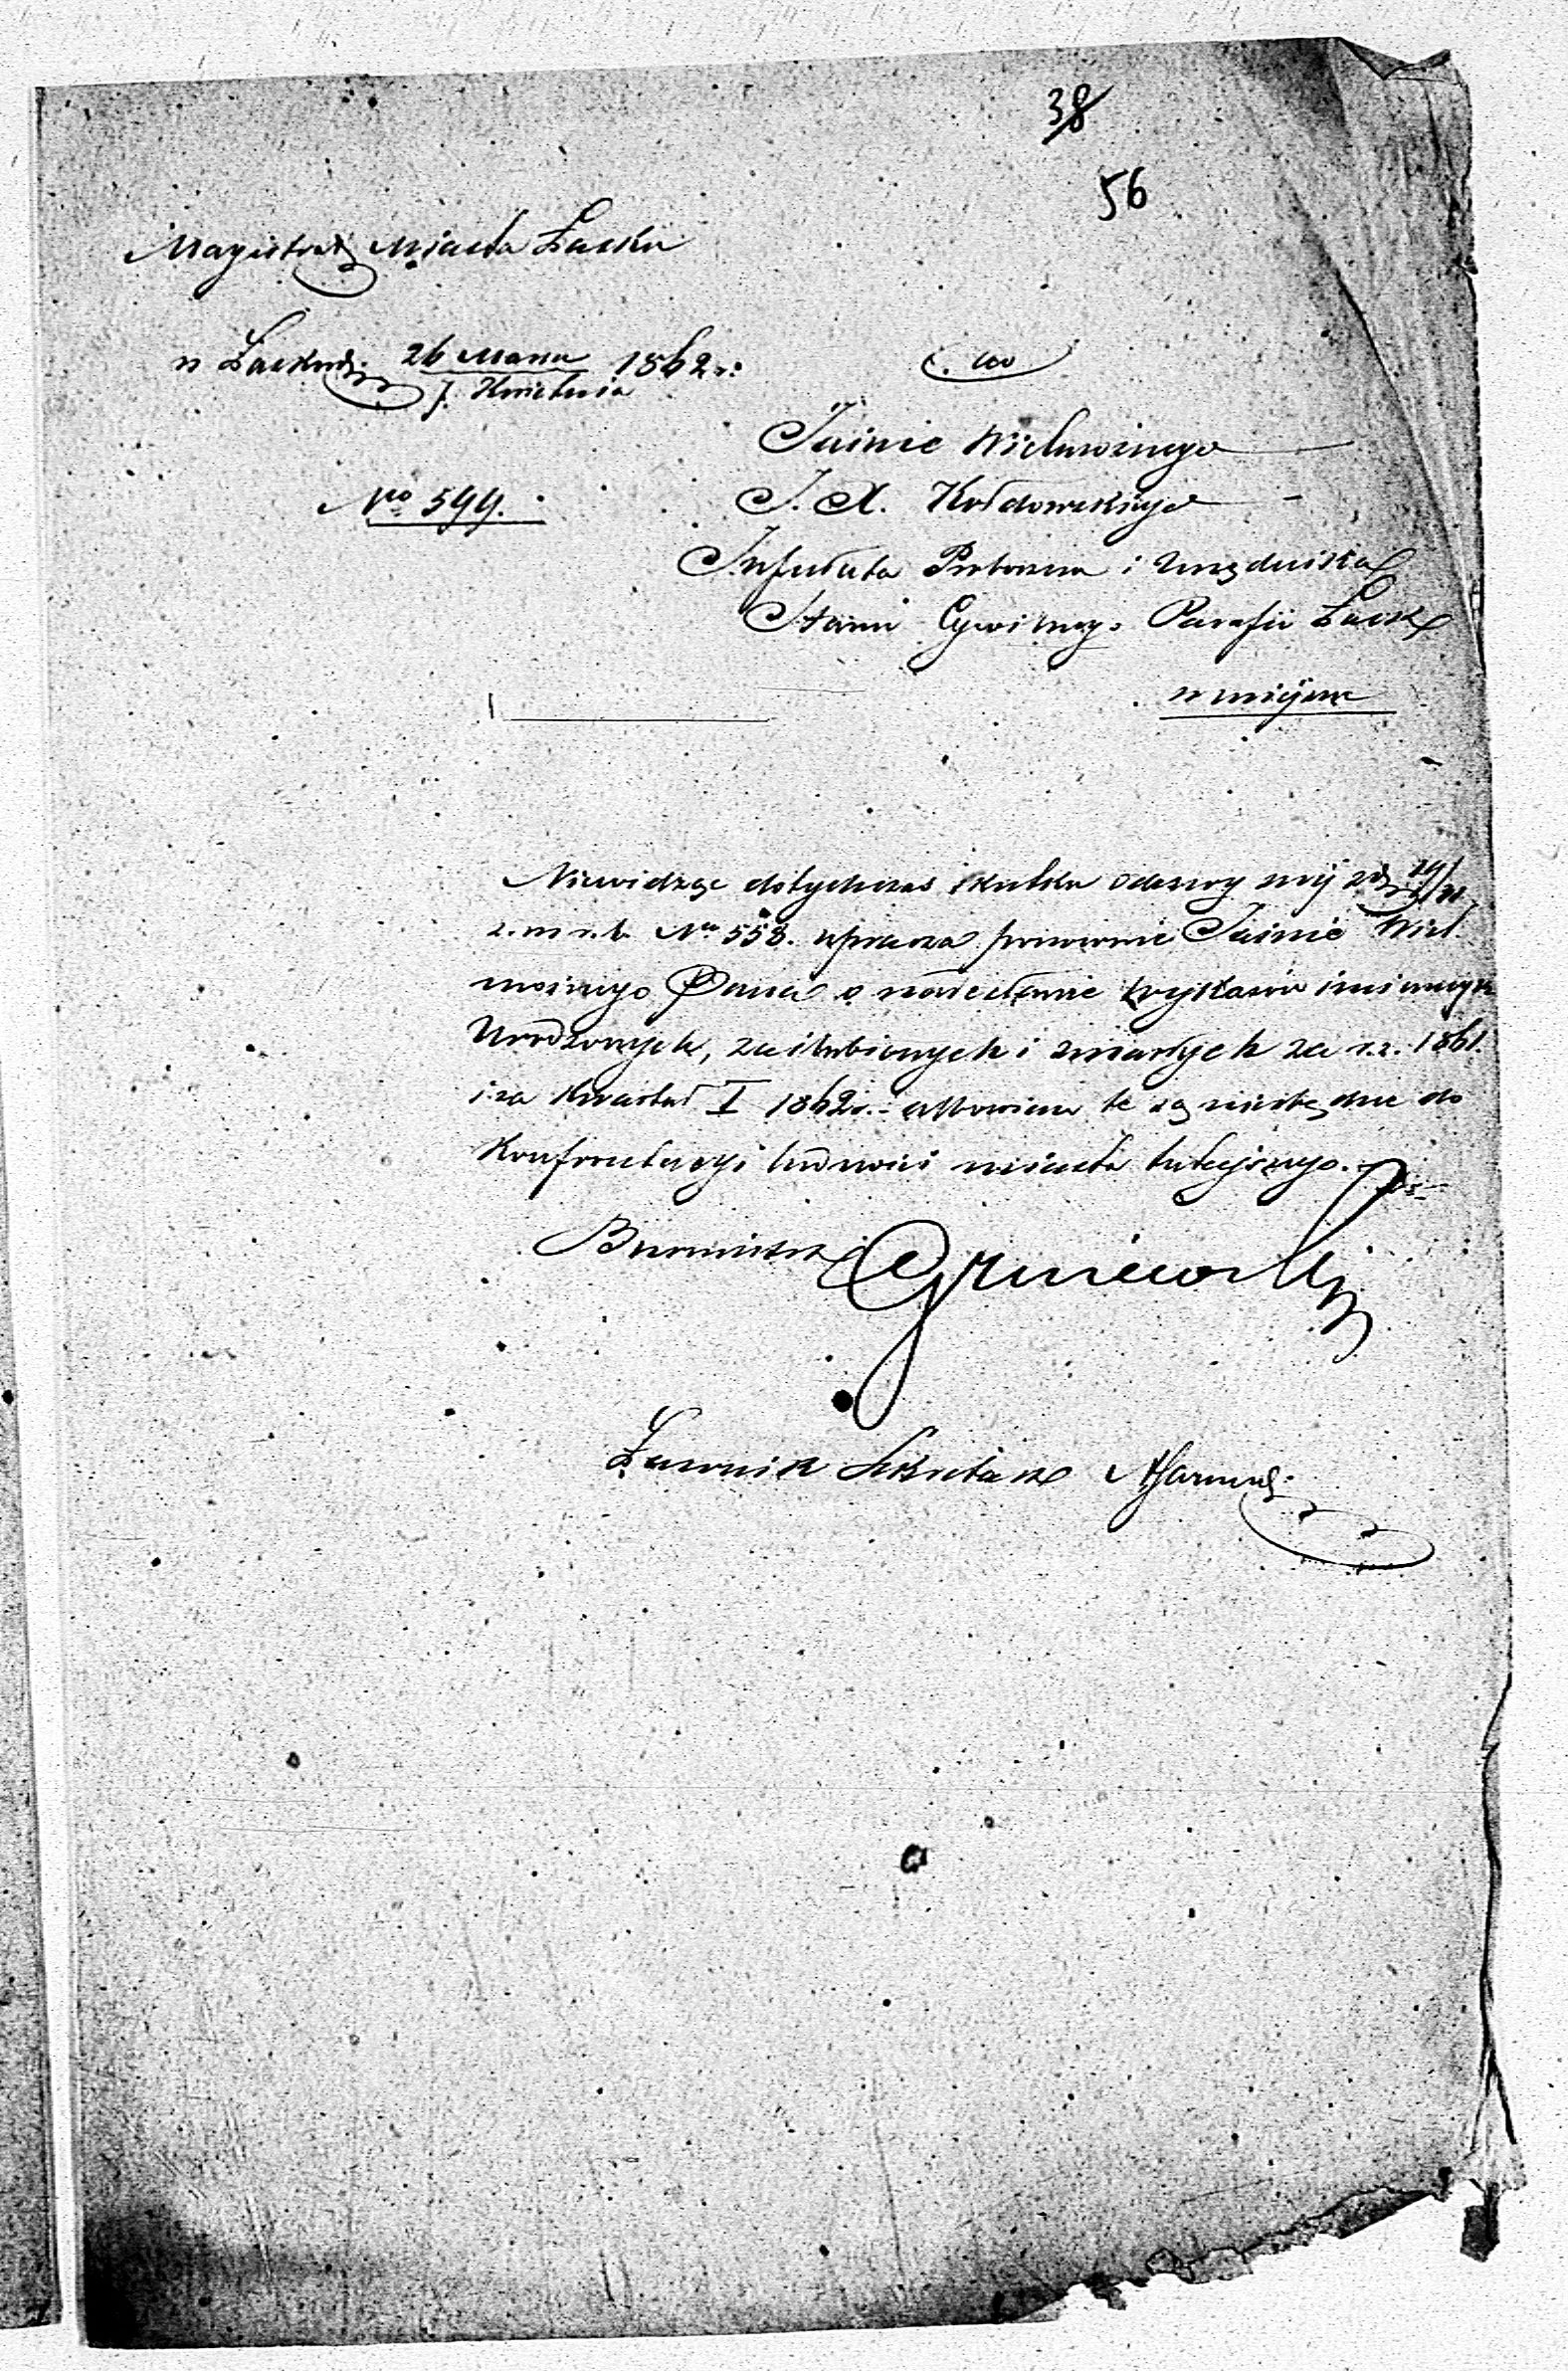 38
56
Magistrat Miasta Łasku
w Łasku d. 26 Marca 1862 r:
7 Kwietnia
Do
Jaśnie Wielmożnego
No 599.
J. X. Kołdowskiego
Infułata Proboszcza i Urzędnika
Stanu Cywilnego Parafii Łask
w miejscu
Niewidząc dotychczas skutku odezwy swéj z d. 19/31
z. m r. b. No 558. uprasza ponownie Jaśnie Wiel
możnego Pana o nadesłanie wykazów imiennych
Urodzonych, zaślubionych i zmarłych za r. z. 1861.
i za Kwartał I 1862 r. albowiem te są niezbędne do
Kontrolacyi ludności miasta tutejszego.
Burmistrz
Ławnik Sekretarz